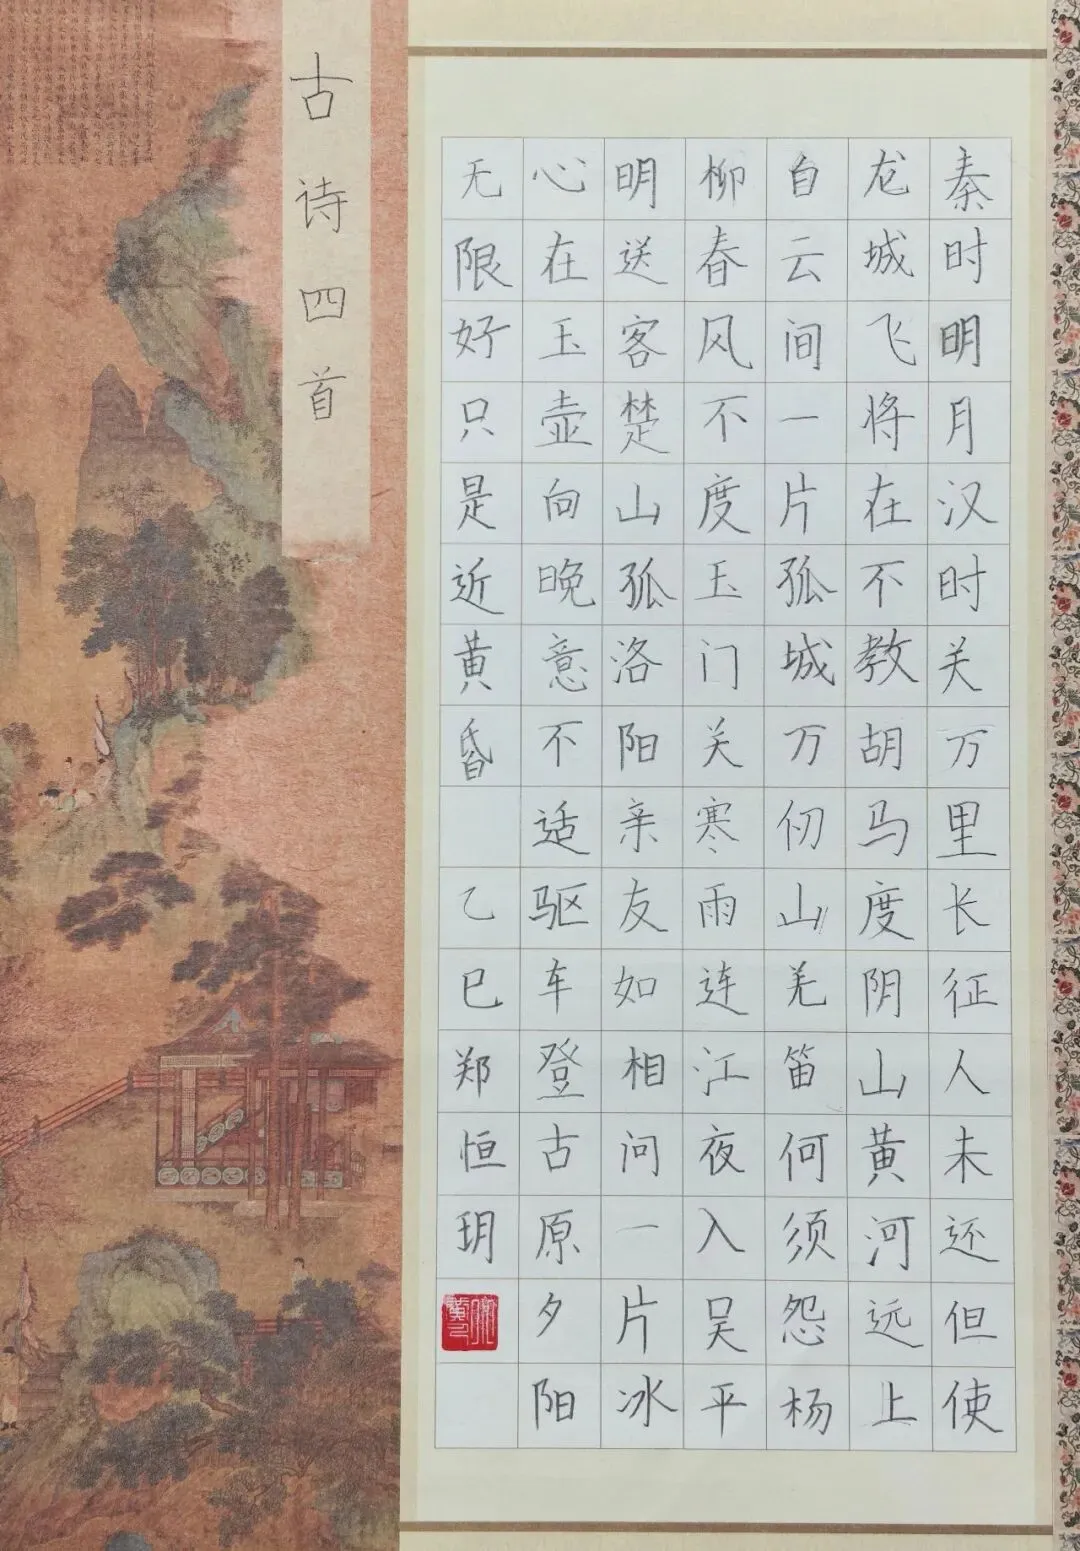 古诗四首
秦时明月汉时关万里长征人未还但使
龙城飞将在不教胡马度阴山黄河远上
自云间一片孤城万仞山羌笛何须怨杨
柳春风不度玉门关寒雨连江夜入吴平
明送客楚山孤洛阳亲友如相问一片冰
心在玉壶向晚意不适驱车登古原夕阳
无限好只是近黄昏 乙巳郑恒玥